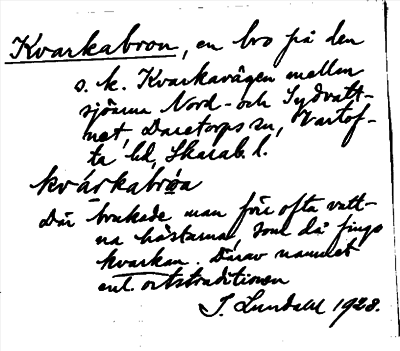 Kvarkabron, en bro på den
s. k. Kvarkavägen mellan
sjöarna Nord- och Sydvatt-
net, Daretorps sn, Vartof-
ta hd, Skarab. l.
kvárkabrøa
Där brukade man förr ofta vatt-
na hästarna, som då fingo
kvarkan. Därav namnet
enl. ortstraditionen
J. Lundahl 1928.